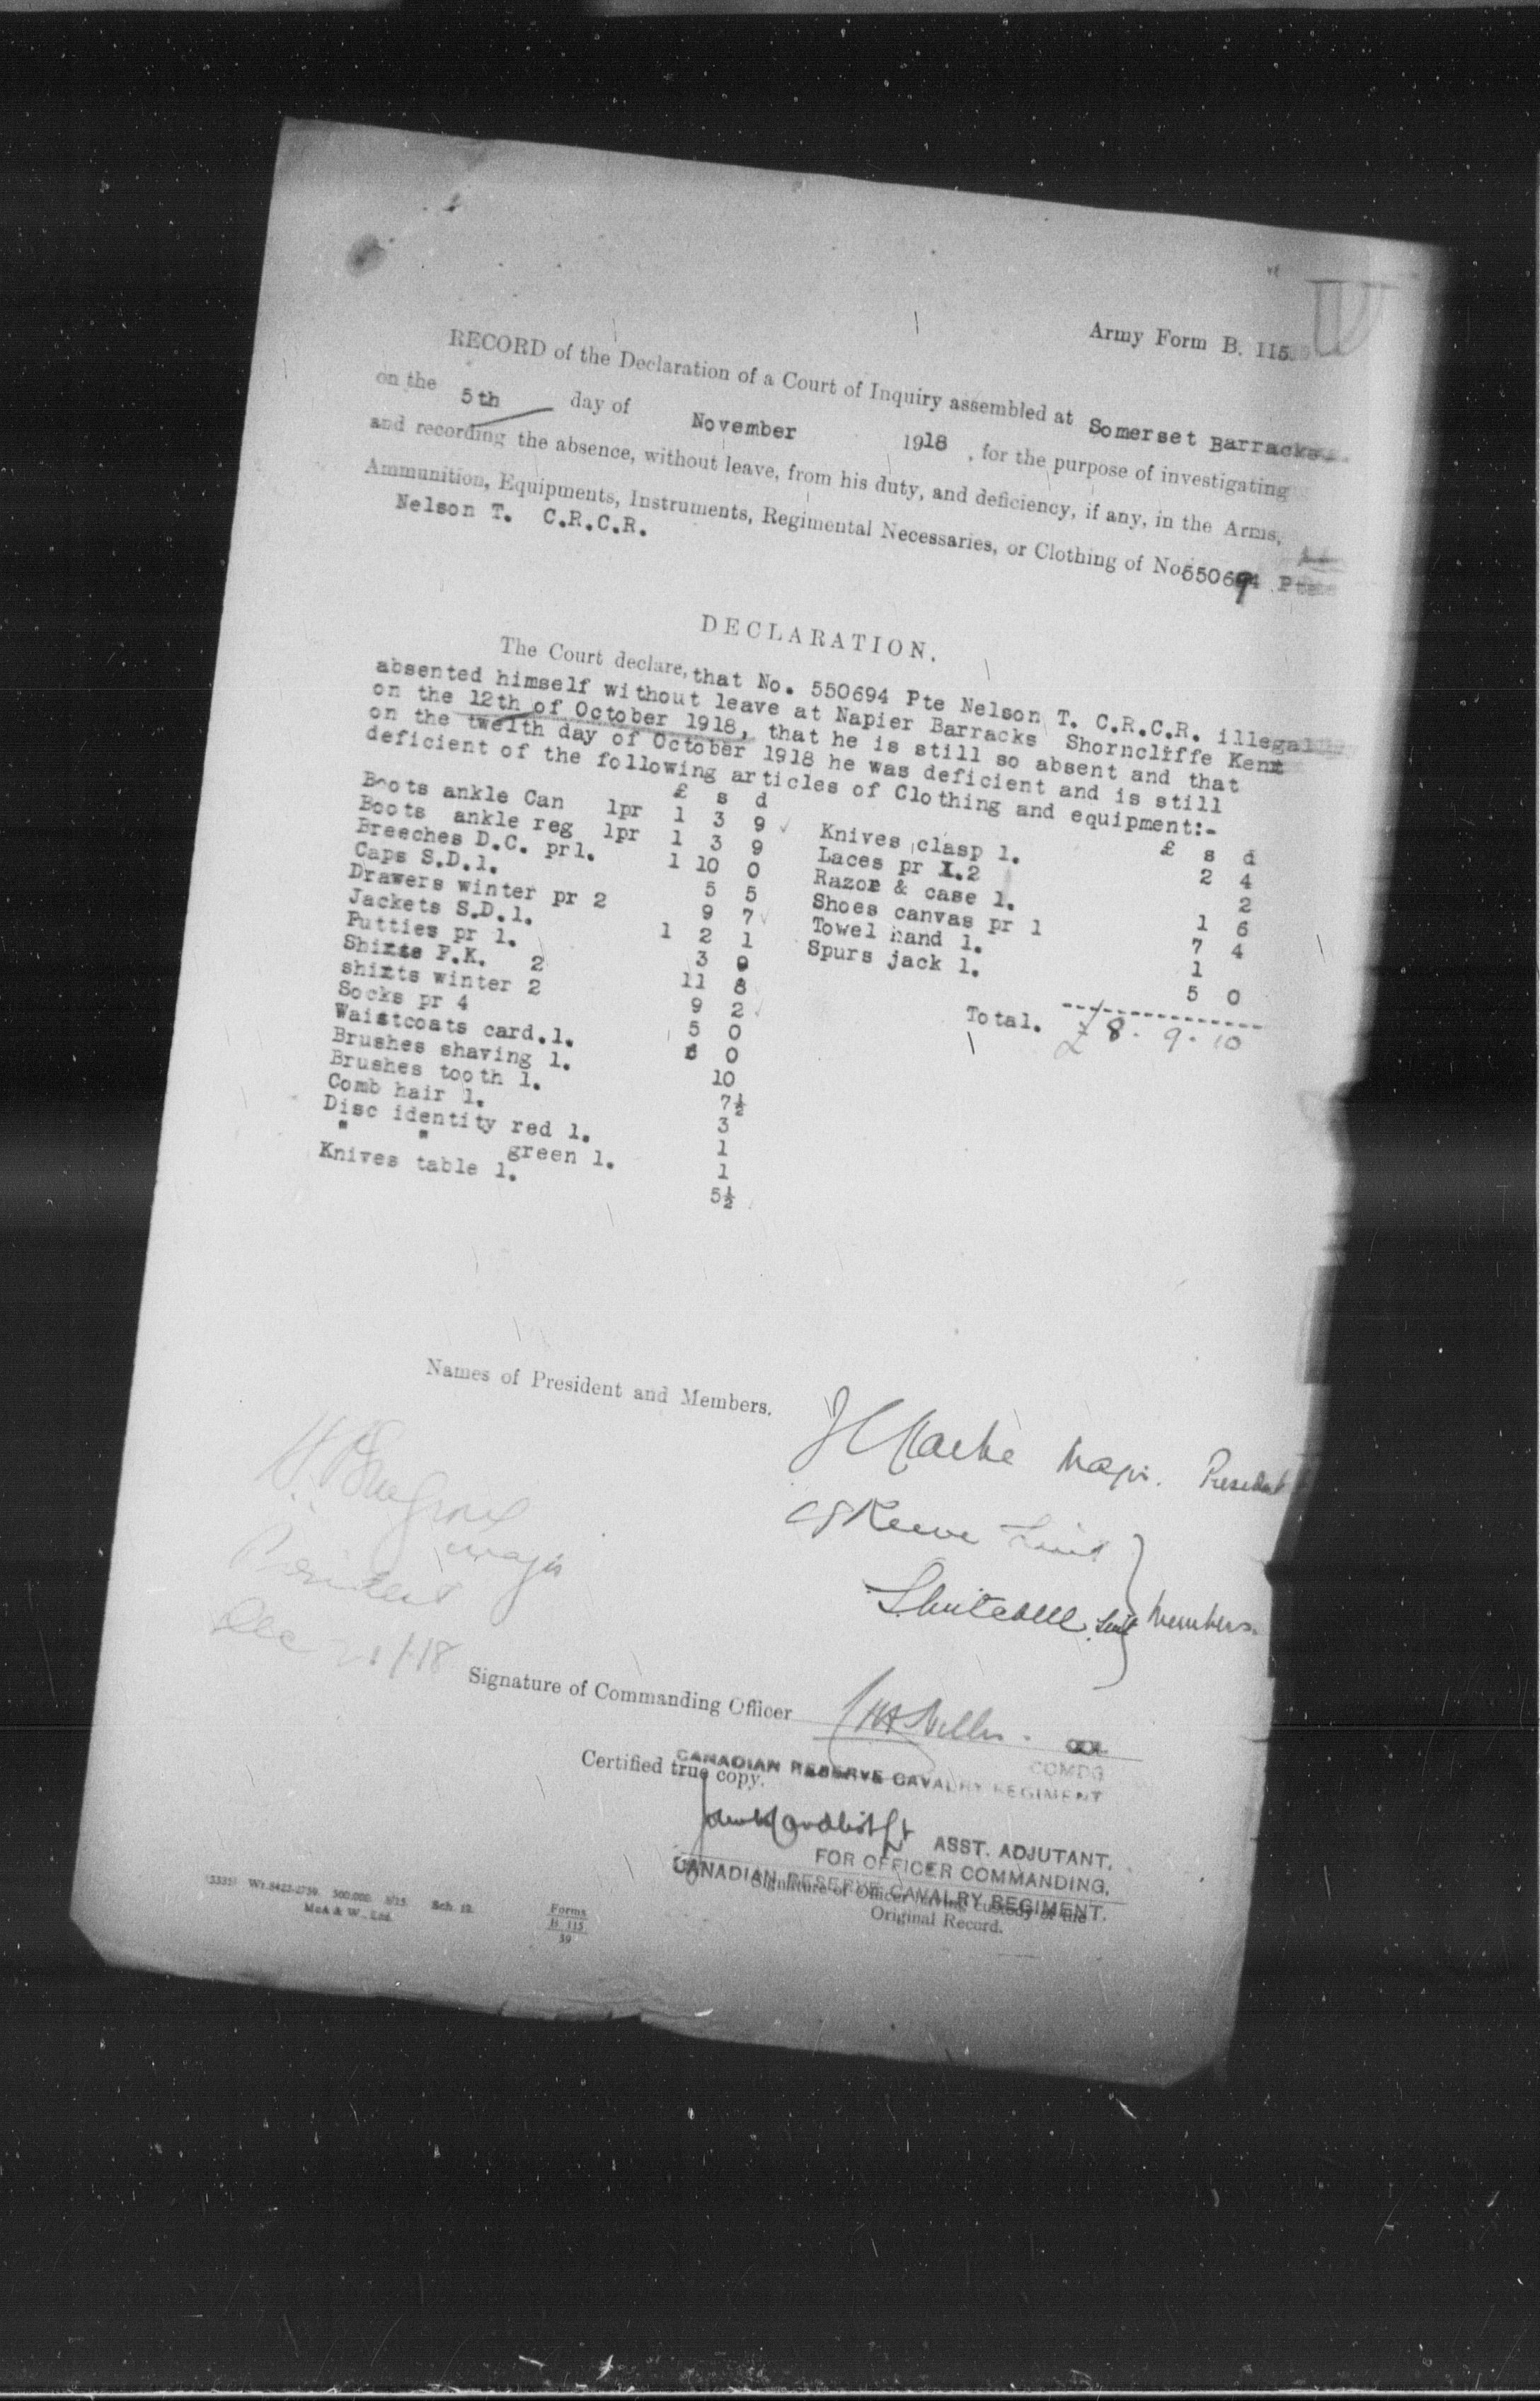 Army Form B. 115.
RECORD of the Declaration of a Court of Inquiry assembled at Somerset Barracks
on the 5th day of November 1918 , for the purpose of investigating
and recording the absence, without leave, from his duty, and deficiency, if any, in the Arms,
Ammunition, Equipments, Instruments, Regimental Necessaries, or Clothing of No 550694 Pte
Nelson T. C.R.C.R.
DECLARATION.
The Court declare, that No. 550694 Pte Nelson T. C.R.C.R. illegal
absented himself without leave at Napier Barracks Shorncliffe Kent
on the 12th of October 1918, that he is still so absent and that
on the twelth day of October 1918 he was deficient and is still
deficient of the following articles of Clothing and equipment:-
£ s d
Boots ankle Can 1pr 1 3 9
Boots ankle reg 1pr 1 3 9
Breeches D.C. pr1. 1 10 0
Caps S.D.1. 5 5
Drawers winter pr 2 9 7
Jackets S.D.1. 1 2 1
Putties pr 1. 3 9
Shirts F.K. 2 11 8
shirts winter 2 9 2
Socks pr 4 5 0
Waistcoats card.1. 6 0
Brushes shaving 1. 10
Brushes tooth 1. 7½
Comb hair 1. 3
Disc identity red 1. 1
" " green 1. 1
Knives table 1. 5½
£ s d
Knives clasp 1. 2 4
Laces pr 1.2 2
Razor & case 1. 1 6
Shoes canvas pr 1 7 4
Towel hand 1. 1
Spurs jack 1. 5 0
Total. £ 8 . 9 . 10
Names of President and Members.
J Clarke Major. President
C S Reeve Lieut
Lieut Members.
Major
President
Dec 18
Signature of Commanding Officer
COL
COMDG
CANADIAN RESERVE CAVALRY REGIMENT
Certified true copy.
Lt ASST. ADJUTANT,
FOR OFFICER COMMANDING,
CANADIAN RESERVE CAVALRY REGIMENT.
Signature of Officer having custody of the
Original Record.
500,000. 8/15. Sch. 12.
McA & W., Ltd.
Forms
B 115
39